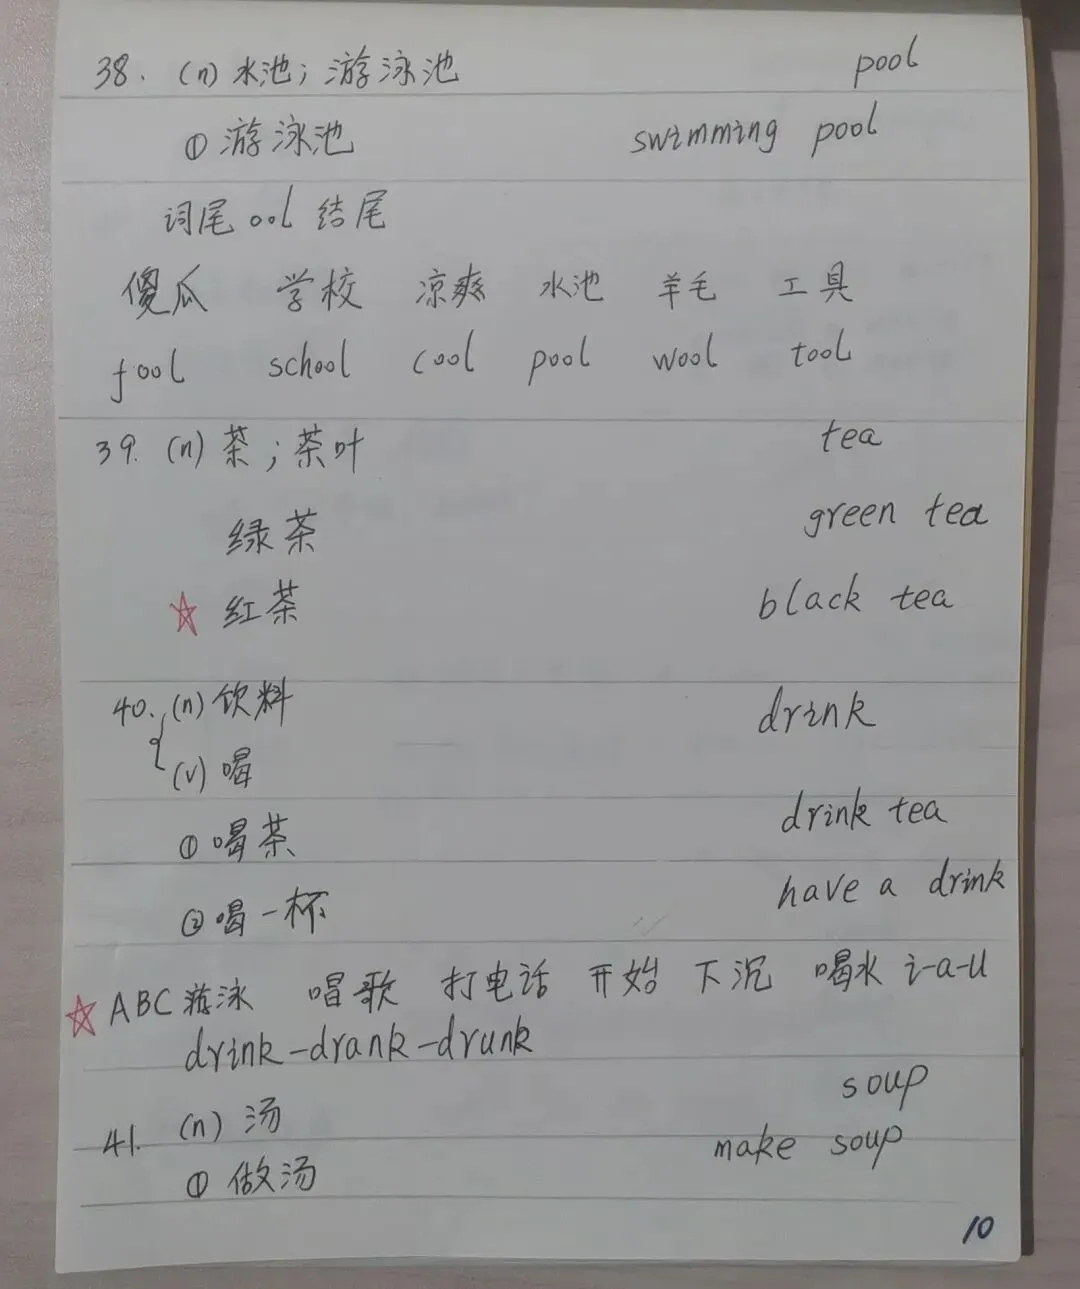 38. (n) 水池；游泳池 pool
① 游泳池 swimming pool
词尾 ool 结尾
傻瓜 学校 凉爽 水池 羊毛 工具
fool school cool pool wool tool
39. (n) 茶；茶叶 tea
绿茶 green tea
☆ 红茶 black tea
40. (n) 饮料 drink
(v) 喝
① 喝茶 drink tea
② 喝一杯 have a drink
☆ ABC 游泳 唱歌 打电话 开始 下沉 喝水 i-a-u
drink-drank-drunk
41. (n) 汤 soup
① 做汤 make soup
10